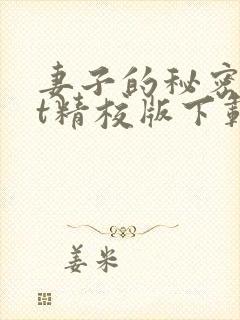 妻子的秘密
t精校版下載
姜米